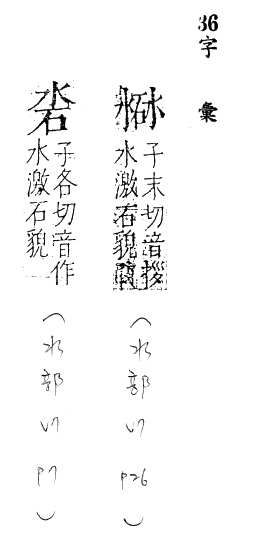 36
字彙
子末切音拶
水激石貌
(水部 p26)
沯
子各切音作
水激石貌
(水部 p7)